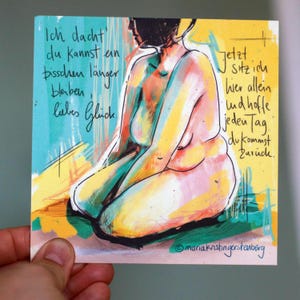 Ich dacht
du kannst ein
bisschen länger
bleiben
liebes Glück.
jetzt
sitz ich
hier allein
und hoffe
jeden Tag
du kommst
zurück.